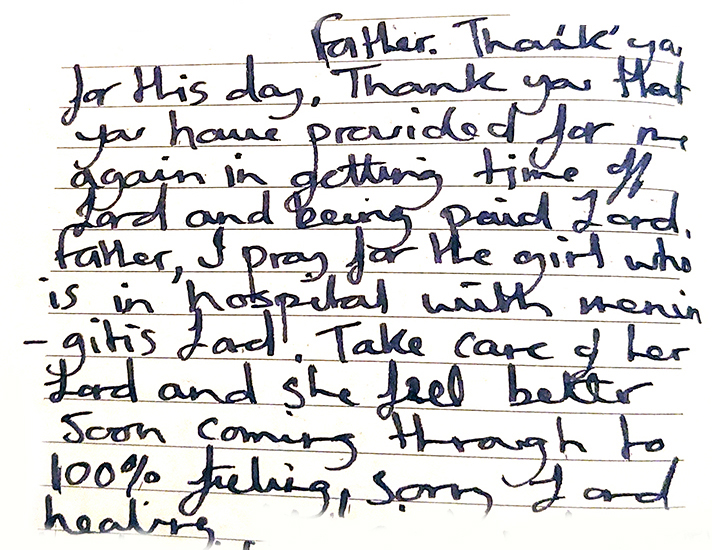 Father. Thank you
for this day. Thank you that
you have provided for me
again in getting time off
Lord and being paid Lord.
Father, I pray for the girl who
is in hospital with menin
- gitis Lord. Take care of her
Lord and she feel better
soon coming through to
100% feeling, sorry Lord
healing.